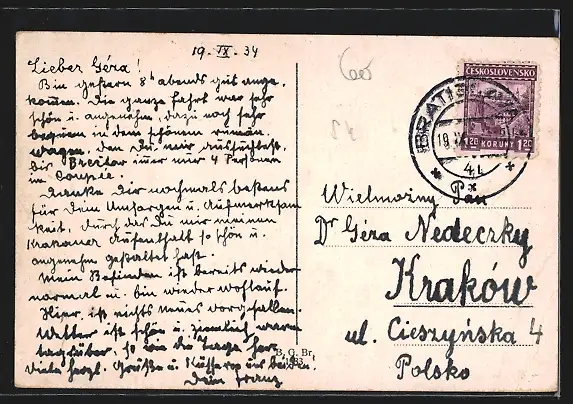 19. IX. 34
Lieber Géza!
Bin gestern 8h abends gut ange-
kommen. Die ganze Fahrt war sehr
schön u. angenehm, dazu noch sehr
bequem in dem schönen rumän.
wagen, den Du mir aufsuchtest,
bis immer nur 4 Personen
im Coupée.
Danke Dir nochmals bestens
für Dein Umsorgen u. Aufmerksam-
keit, durch das Du mir meinen
Krakauer Aufenthalt so schön u.
angenehm gestaltet hast.
Mein Befinden ist bereits wieder
normal u. bin wieder wohlauf.
Hier ist nichts neues vorgefallen.
Wetter ist schön u. ziemlich warm
tagsüber, so wie die Tage
Viele herzl. Grüße u. Küsse
Dein Franz
B. G. Br.
1933
ČESKOSLOVENSKO
1.20 KORUNY 1.20
BRATISLAVA
4
Wielmożny Pan
Dr Géza Nedeczky
Kraków
ul. Cieszyńska 4
Polsko